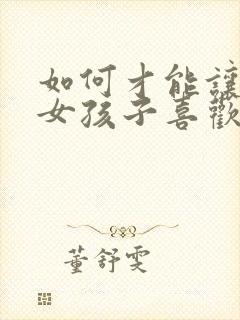 如何才能讓
女孩子喜歡
董舒雯